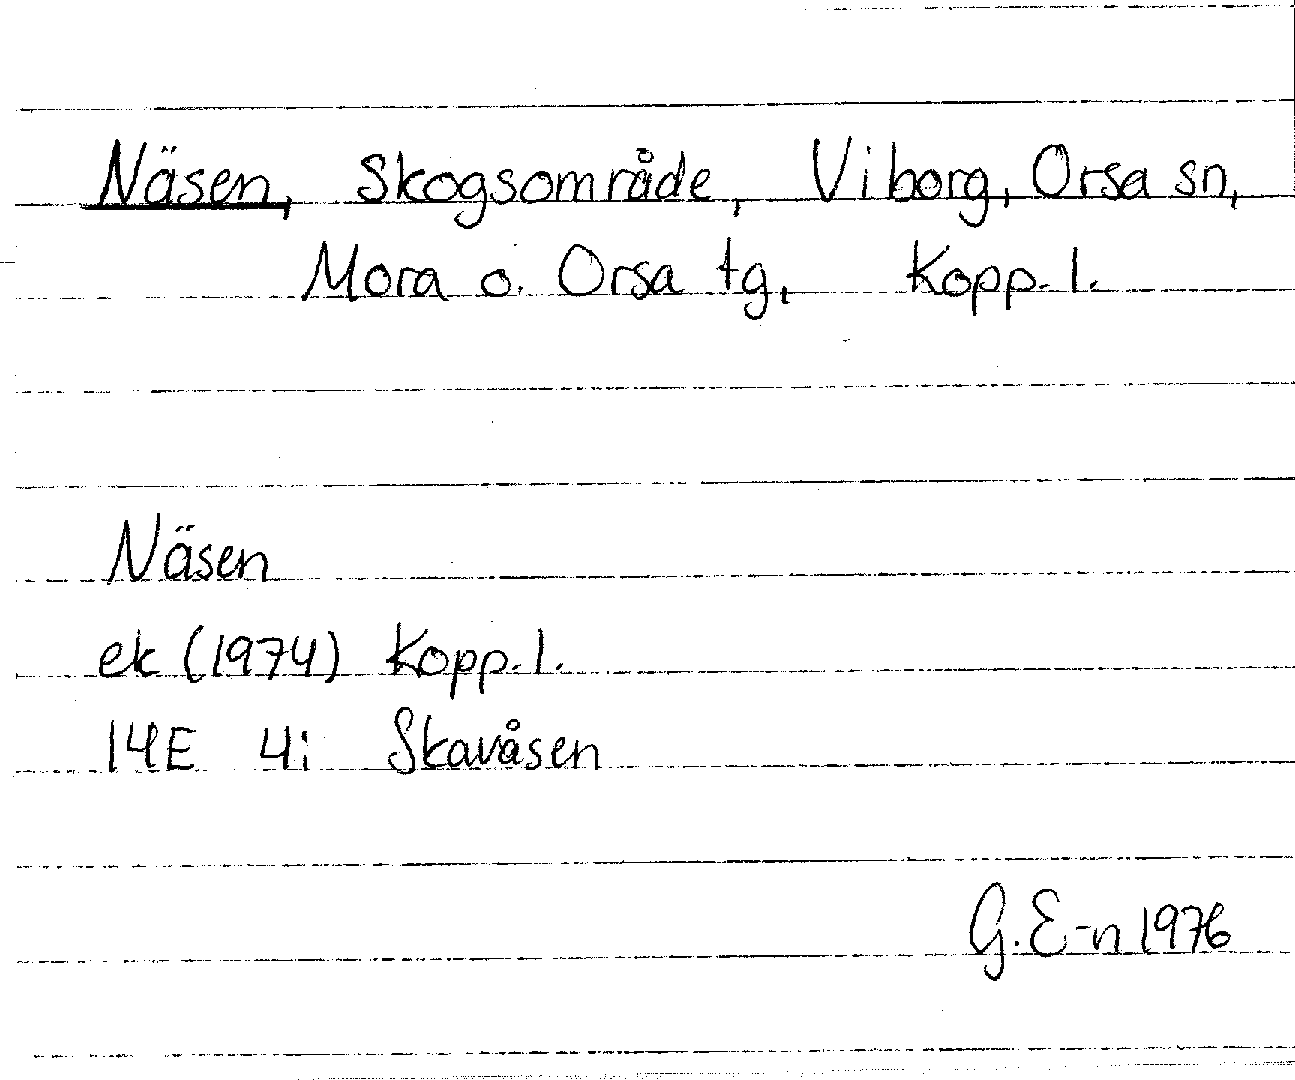 Näsen, Skogsområde, Viborg, Orsa sn,
Mora o. Orsa tg, Kopp. l.
Näsen
ek (1974) Kopp. l.
14E 4i Skavåsen
G. E-n 1976